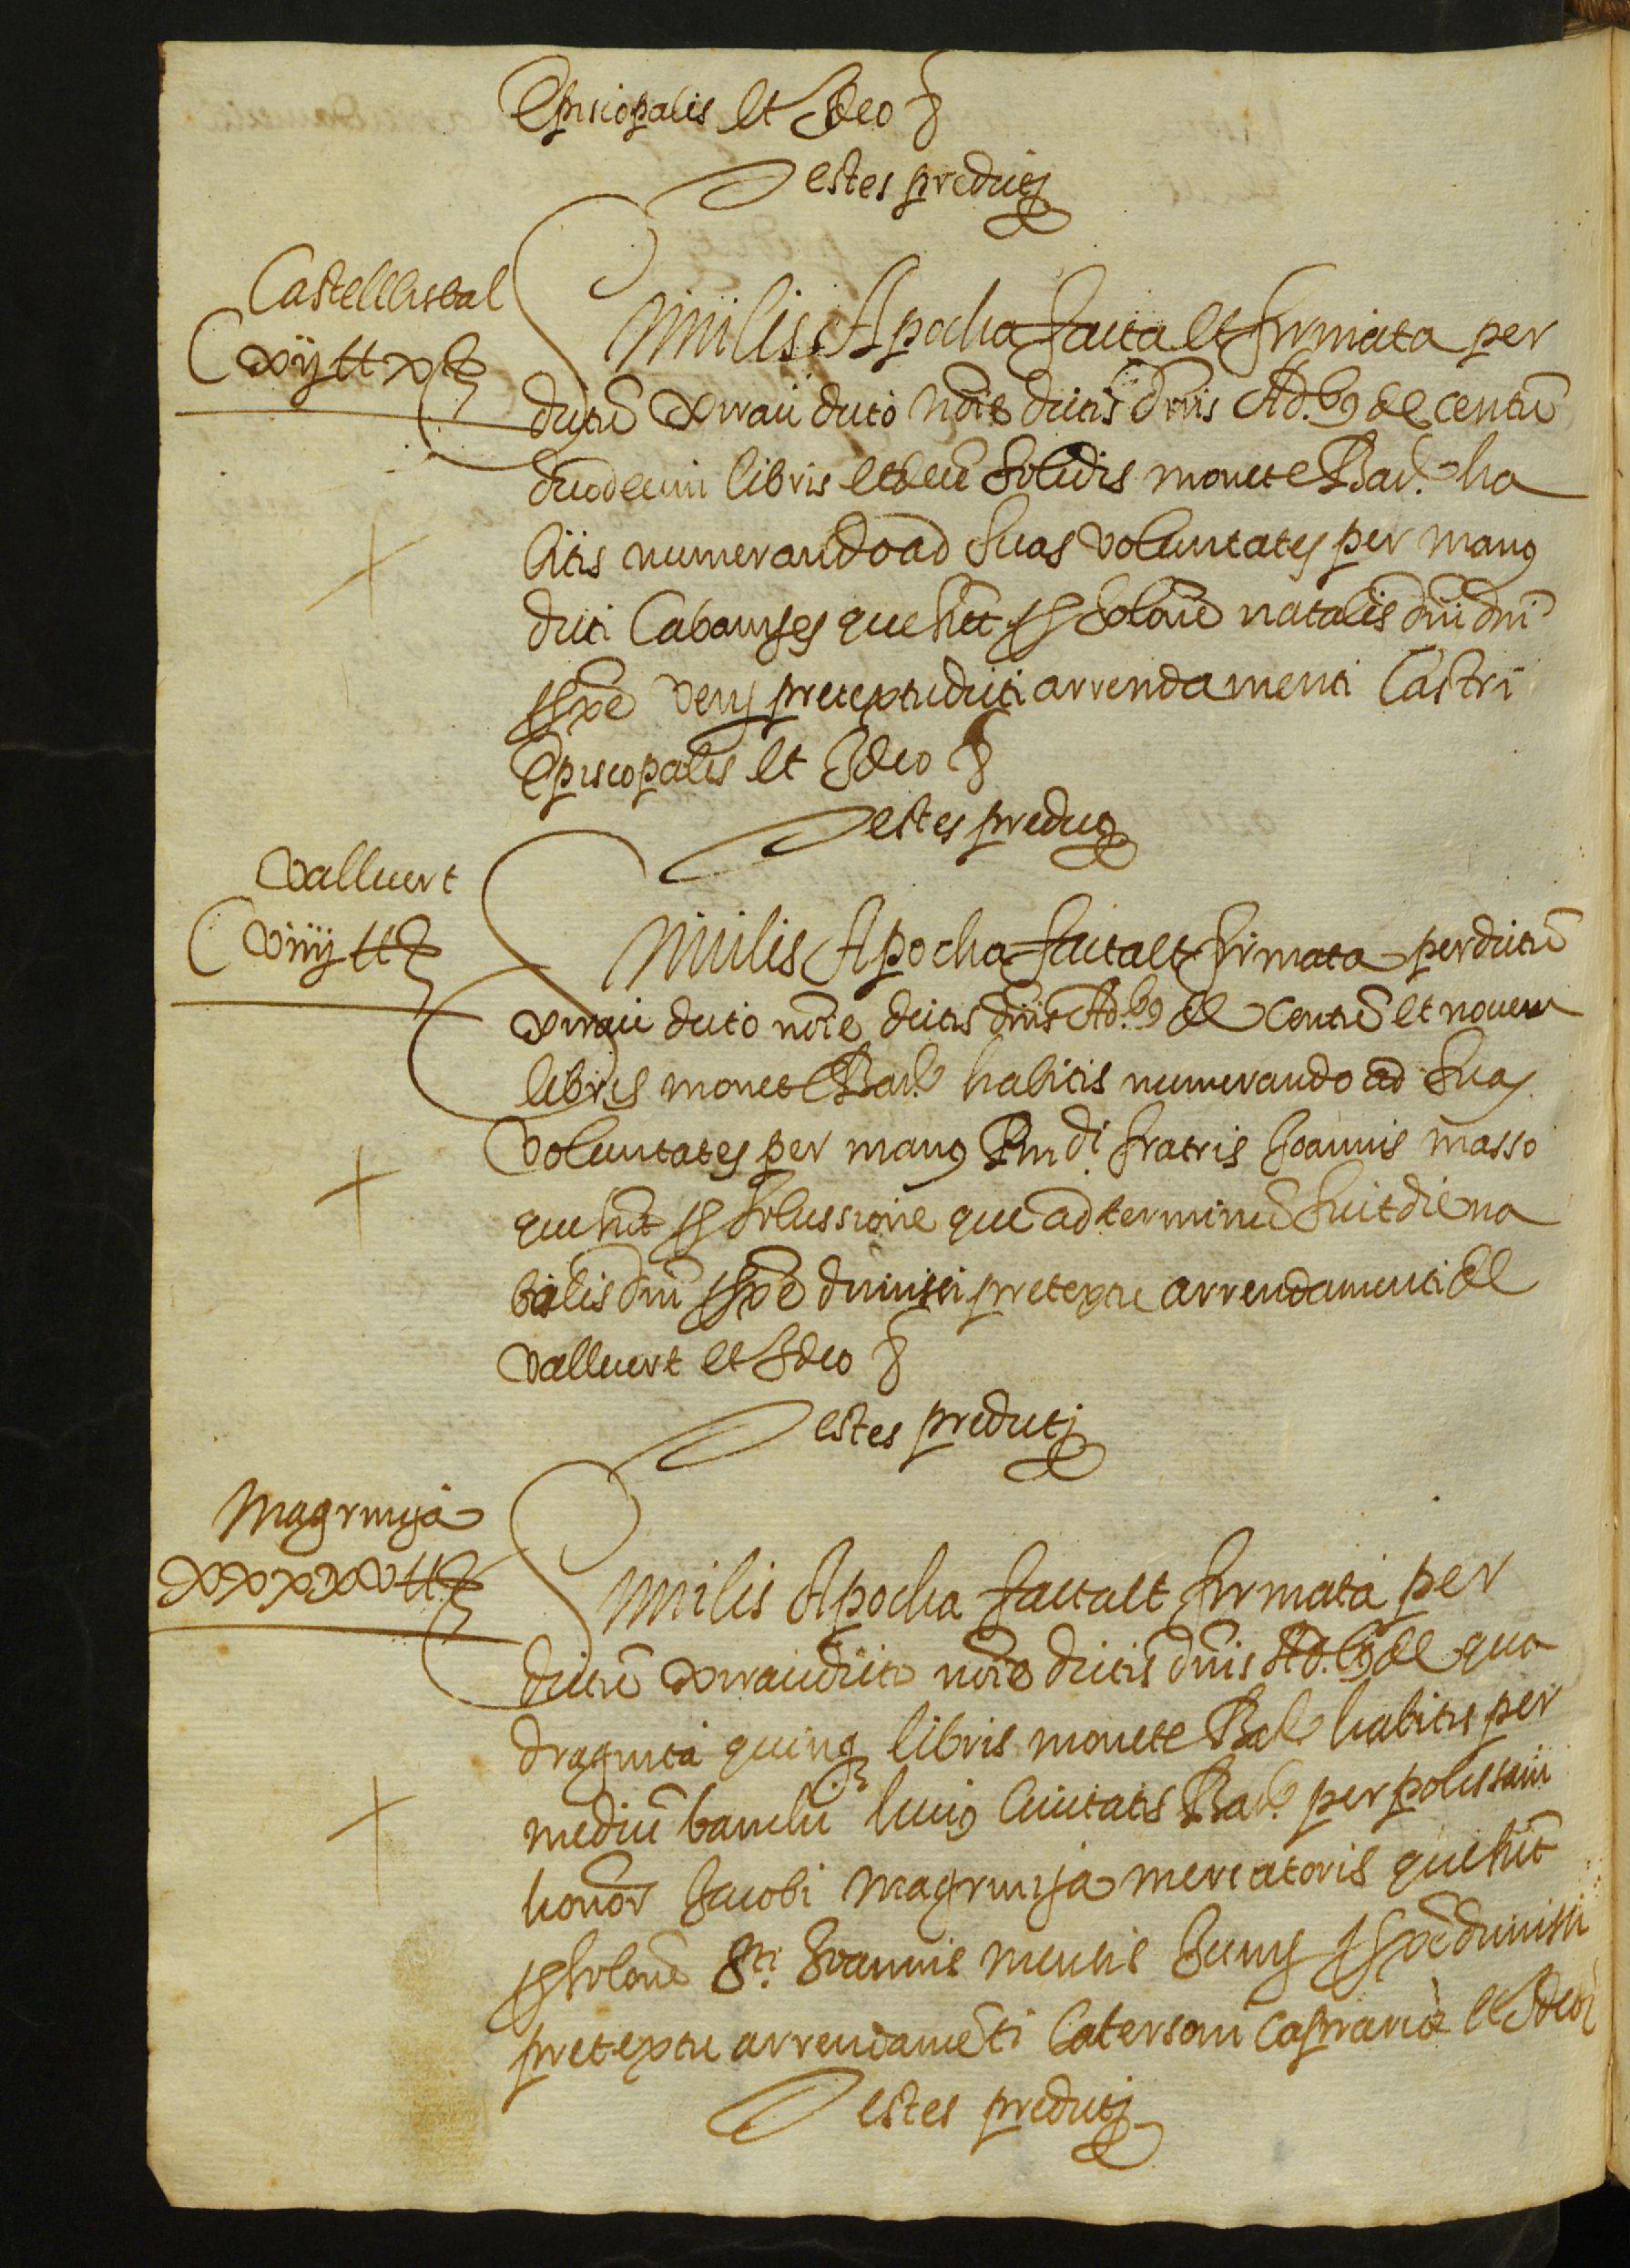 Episcopalis et Ideo &
Testes predictj
Castellbisbal
Cxij ll x ß
Similis Apocha facta et firmata per
dictũ Xrraũ dicto nõie dictis dñis Ad.bȝ de centũ
duodecim libris et decẽ solidis monete Barñ. ha
bitis numerando ad suas voluntates per manȝ
dicti Cabanyes que sũt pro solõne natalis dñi dñi
pxẽ venj pretextu dicti arrendamenti Castri
Episcopalis et Ideo &
Testes predictj
Vallvert
Cviiij ll ß
Similis Apocha facta et firmata per dictũ
Xrraũ dicto nõie dictis dñis Ad.bȝ de centũ et novem
libris monete Barñ habitis numerando ad suas
voluntates per manȝ Rndi fratris Joannis masso
que sũt pro solussione que ad terminũ fuit die na
talis dñi pxẽ dimissi pretextu arrendamenti de
Vallvert et Ideo &
Testes predictj
Magrinya
xxxxv ll ß
Similis Apocha facta et firmata per
dictũ Xrraũ dicto nõie dictis dñis Ad.bȝ de qua
draginta quinqȝ libris monete Barñ habitis per
mediũ banchũ huiȝ Civitatis Barñ per polissam
honor Jacobi Magrinya mercatoris que sũt
pro solonẽ Sti. Joannis mensis Junij pxẽ dimissi
pretextu arrendamẽti Catersom Caprarie et Ideo &
Testes predictj